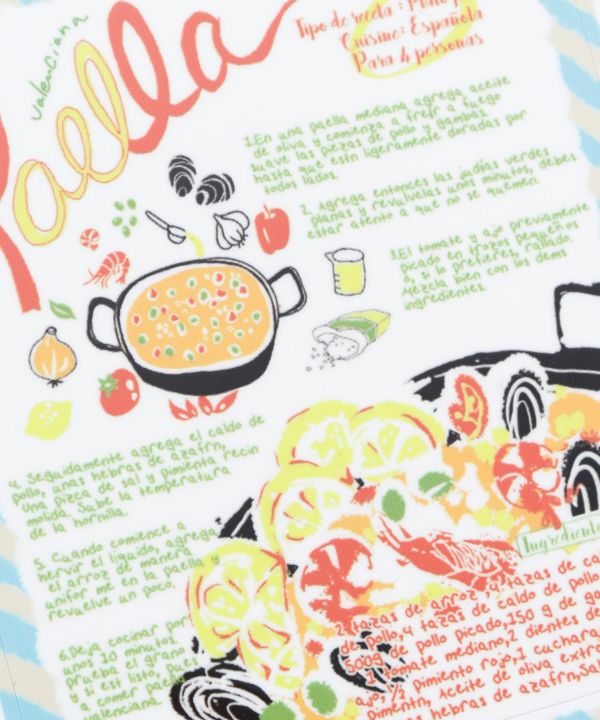 valenciana
Paella
Tipo de receta: Plato
Cuisine: Española
Para 4 personas
1.En una paella mediana agrega aceite
de oliva y comienza a freir a fuego
suave las piezas de pollo y gambas
hasta que estn ligeramente doradas por
todos lados.
2. Agrega entonces las judías verdes
planas y revuelvelas unos minutos, debes
estar atento a que no se quemen
3.El tomate y ajo previamente
picado en trozos pequeños
o, si lo prefieres, rallado.
Mezcla bien con los dems
ingredientes.
4. Seguidamente agrega el caldo de
pollo, unas hebras de azafrn,
Una pizca de sal y pimienta recin
molida. Sube la temperatura
de la hornilla.
5. Cuando comience a
hervir el líquido, agrega
el arroz de manera
unifor me en la paella y
revuelve un poco.
6.Deja cocinar por
unos 10 minutos
prueba el grano
y si est listo, pues
a comer paella
valenciana
Ingredient
2 tazas de arroz, 4 tazas de cal
de pollo, 4 tazas de caldo de pollo
500g de pollo picado, 150 g de ga
1 tomate mediano, 2 dientes de
ajo, 1/2 pimiento rojo, 1 cuchara
pimentn, Aceite de oliva extra
as hebras de azafrn, Sal